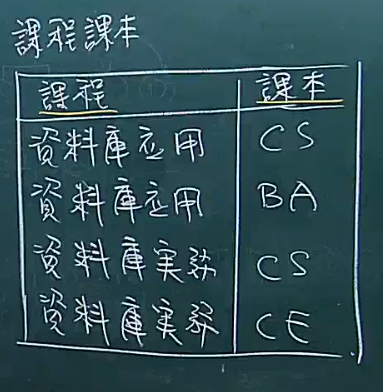 課程課本
課程 課本
資料庫应用 CS
資料庫应用 BA
資料庫実務 CS
資料庫実務 CE